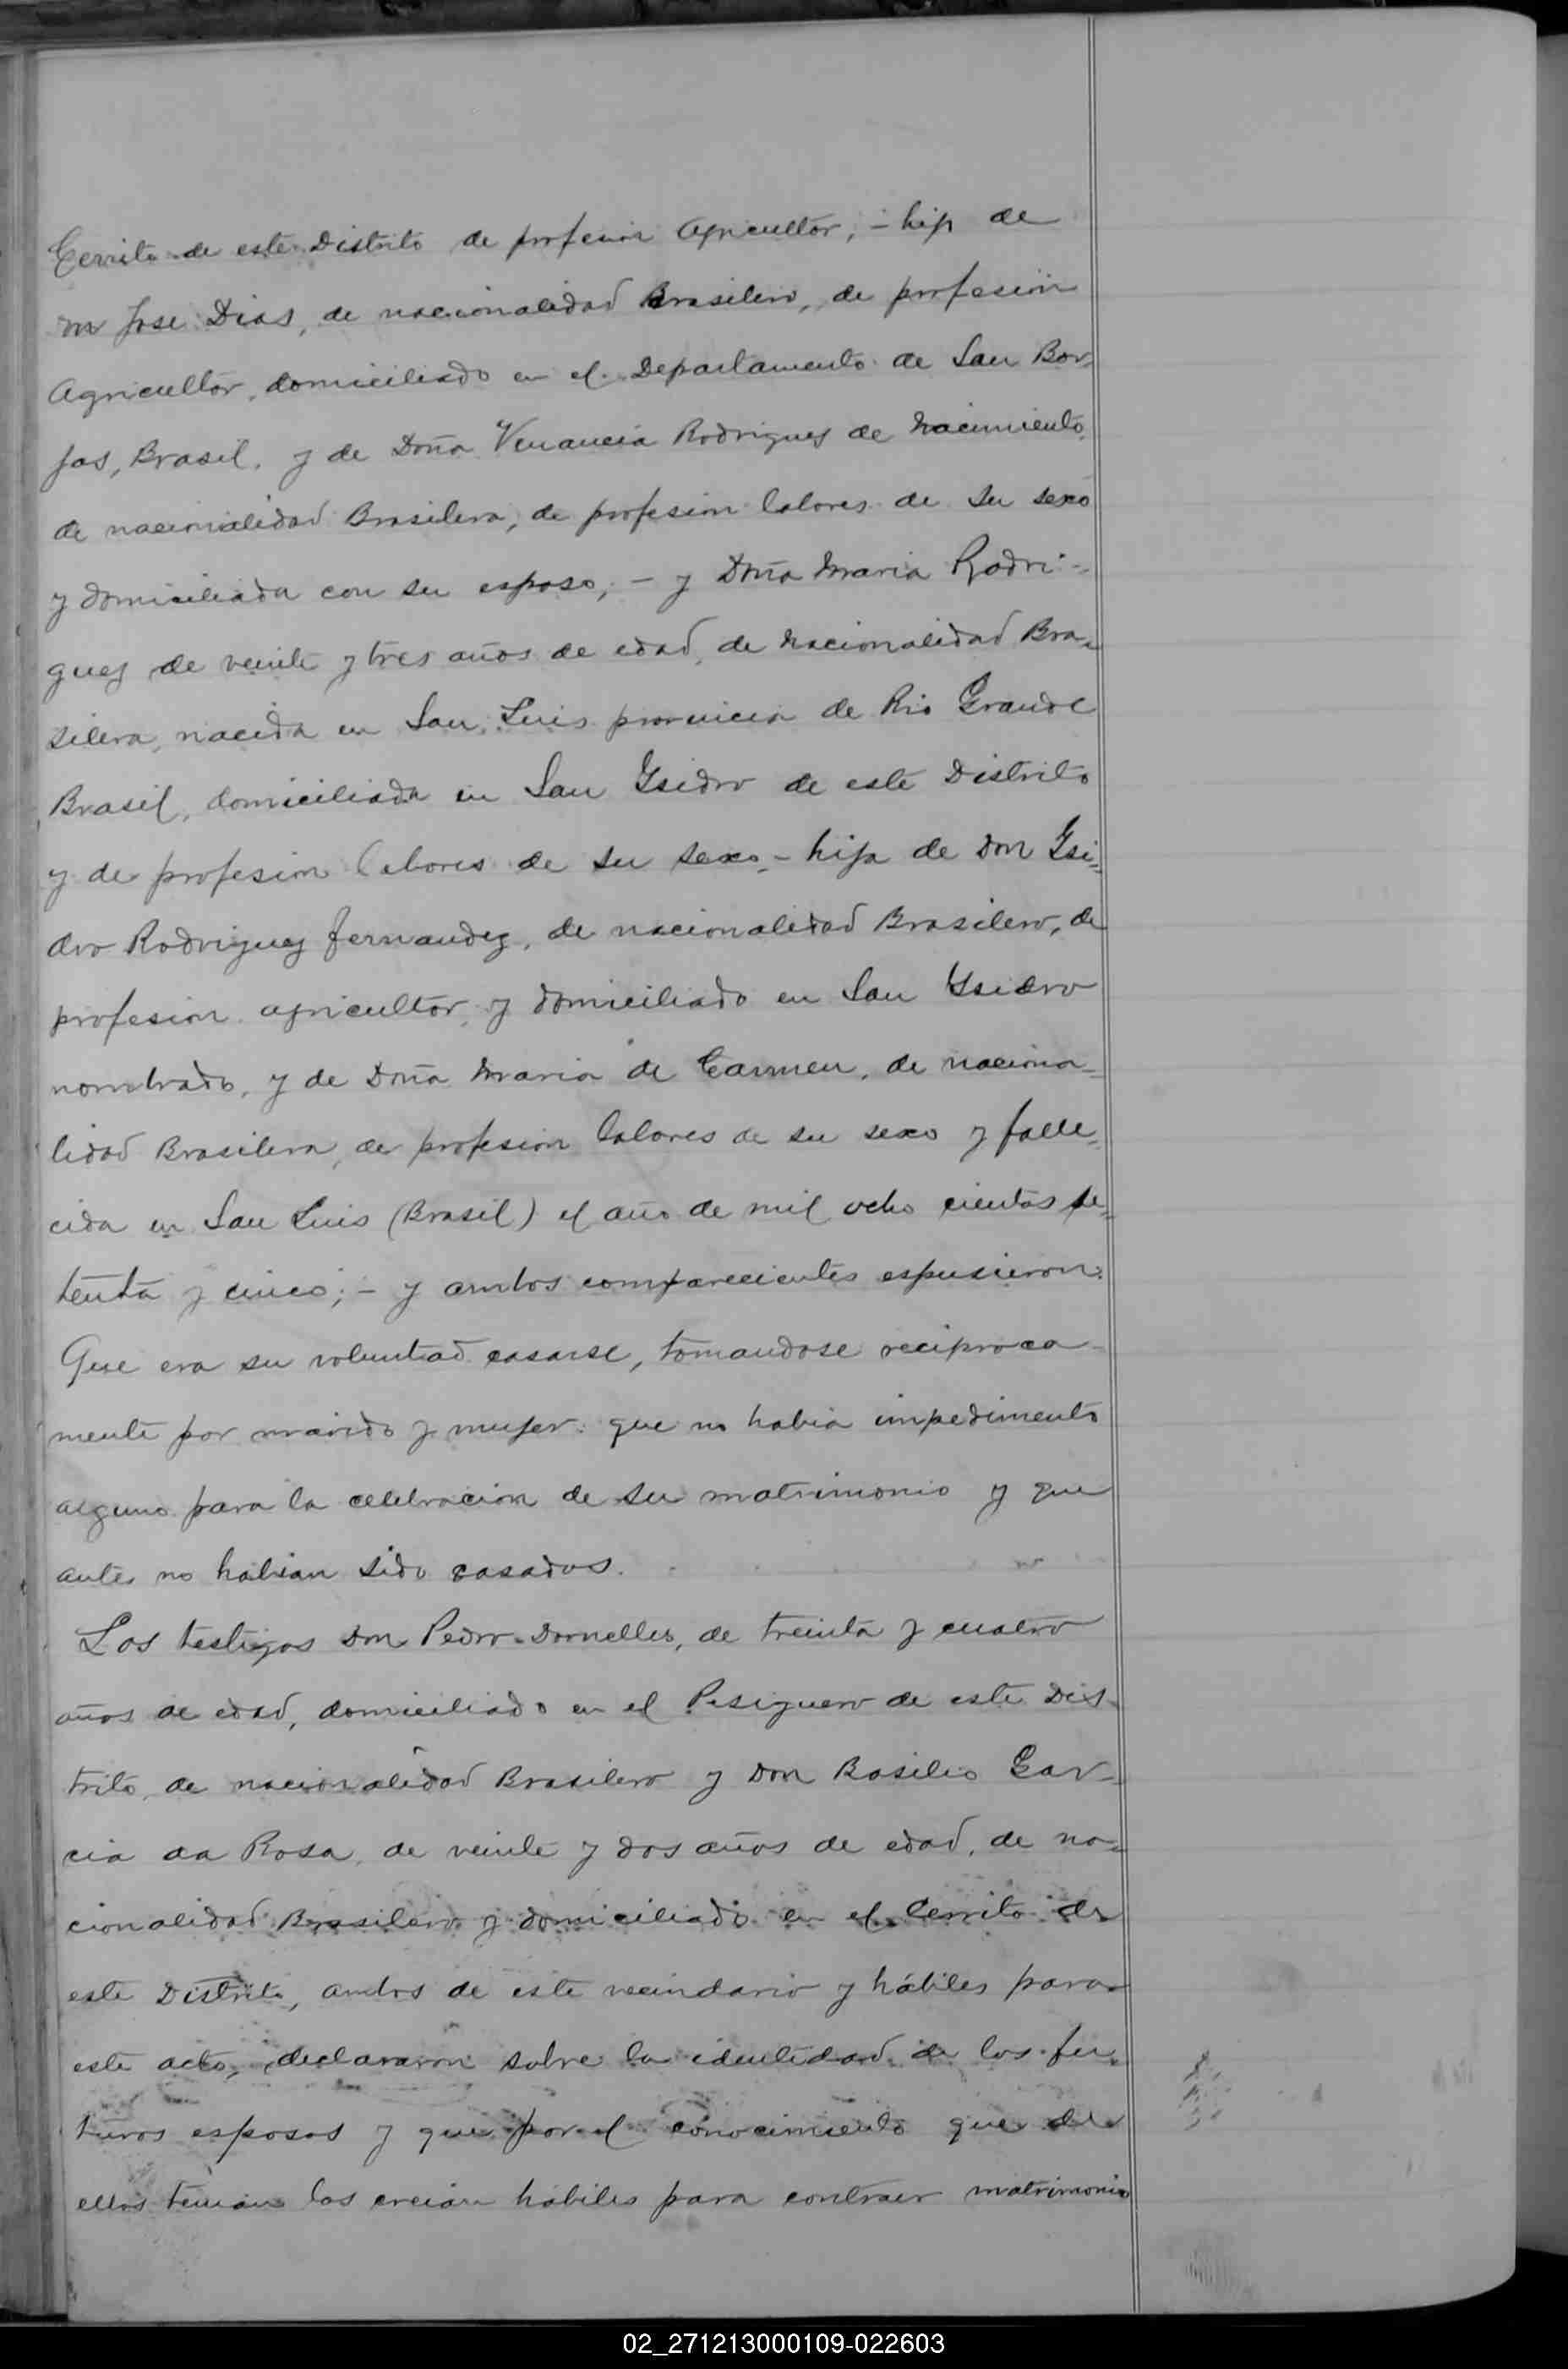 Cerrito de este Distrito de profesion Agricultor, - hijo de
Don Jose Dias, de nacionalidad Brasilero, de profesion
Agricultor, domiciliado en el Departamento de San Bor-
jas, Brasil, y de Doña Venancia Rodrigues de Nacimiento,
de nacionalidad Brasilera, de profesion labores de su sexo
y domiciliada con su esposo; - y Doña Maria Rodri-
guez de veinte y tres años de edad, de nacionalidad Bra-
silera, nacida en San Luis provincia de Rio Grande
Brasil, domiciliada en San Ysidro de este Distrito
y de profesion labores de su sexo, - hija de Don Ysi-
dro Rodriguez Fernandez, de nacionalidad Brasilero, de
profesion agricultor, y domiciliado en San Ysidro
nombrado, y de Doña Maria de Carmen, de naciona-
lidad Brasilera, de profesion labores de su sexo y falle-
cida en San Luis (Brasil) el año de mil ocho cientos se-
tenta y cinco; - y ambos comparecientes espusieron:
Que era su voluntad casarse, tomandose reciproca-
mente por marido y mujer: que no habia impedimento
alguno para la celebracion de su matrimonio y que
antes no habian sido casados.
Los testigos Don Pedro Dornelles, de treinta y cuatro
años de edad, domiciliado en el Pesiguero de este Dis-
trito, de nacionalidad Brasilero y Don Basilio Gar-
cia da Rosa, de veinte y dos años de edad, de na-
cionalidad Brasilero y domiciliado en el Cerrito de
este Distrito, ambos de este vecindario y hábiles para
este acto, declararon sobre la identidad de los fu-
turos esposos y que por el conocimiento que de
ellos tenian los creian hábiles para contraer matrimonio
02_271213000109-022603